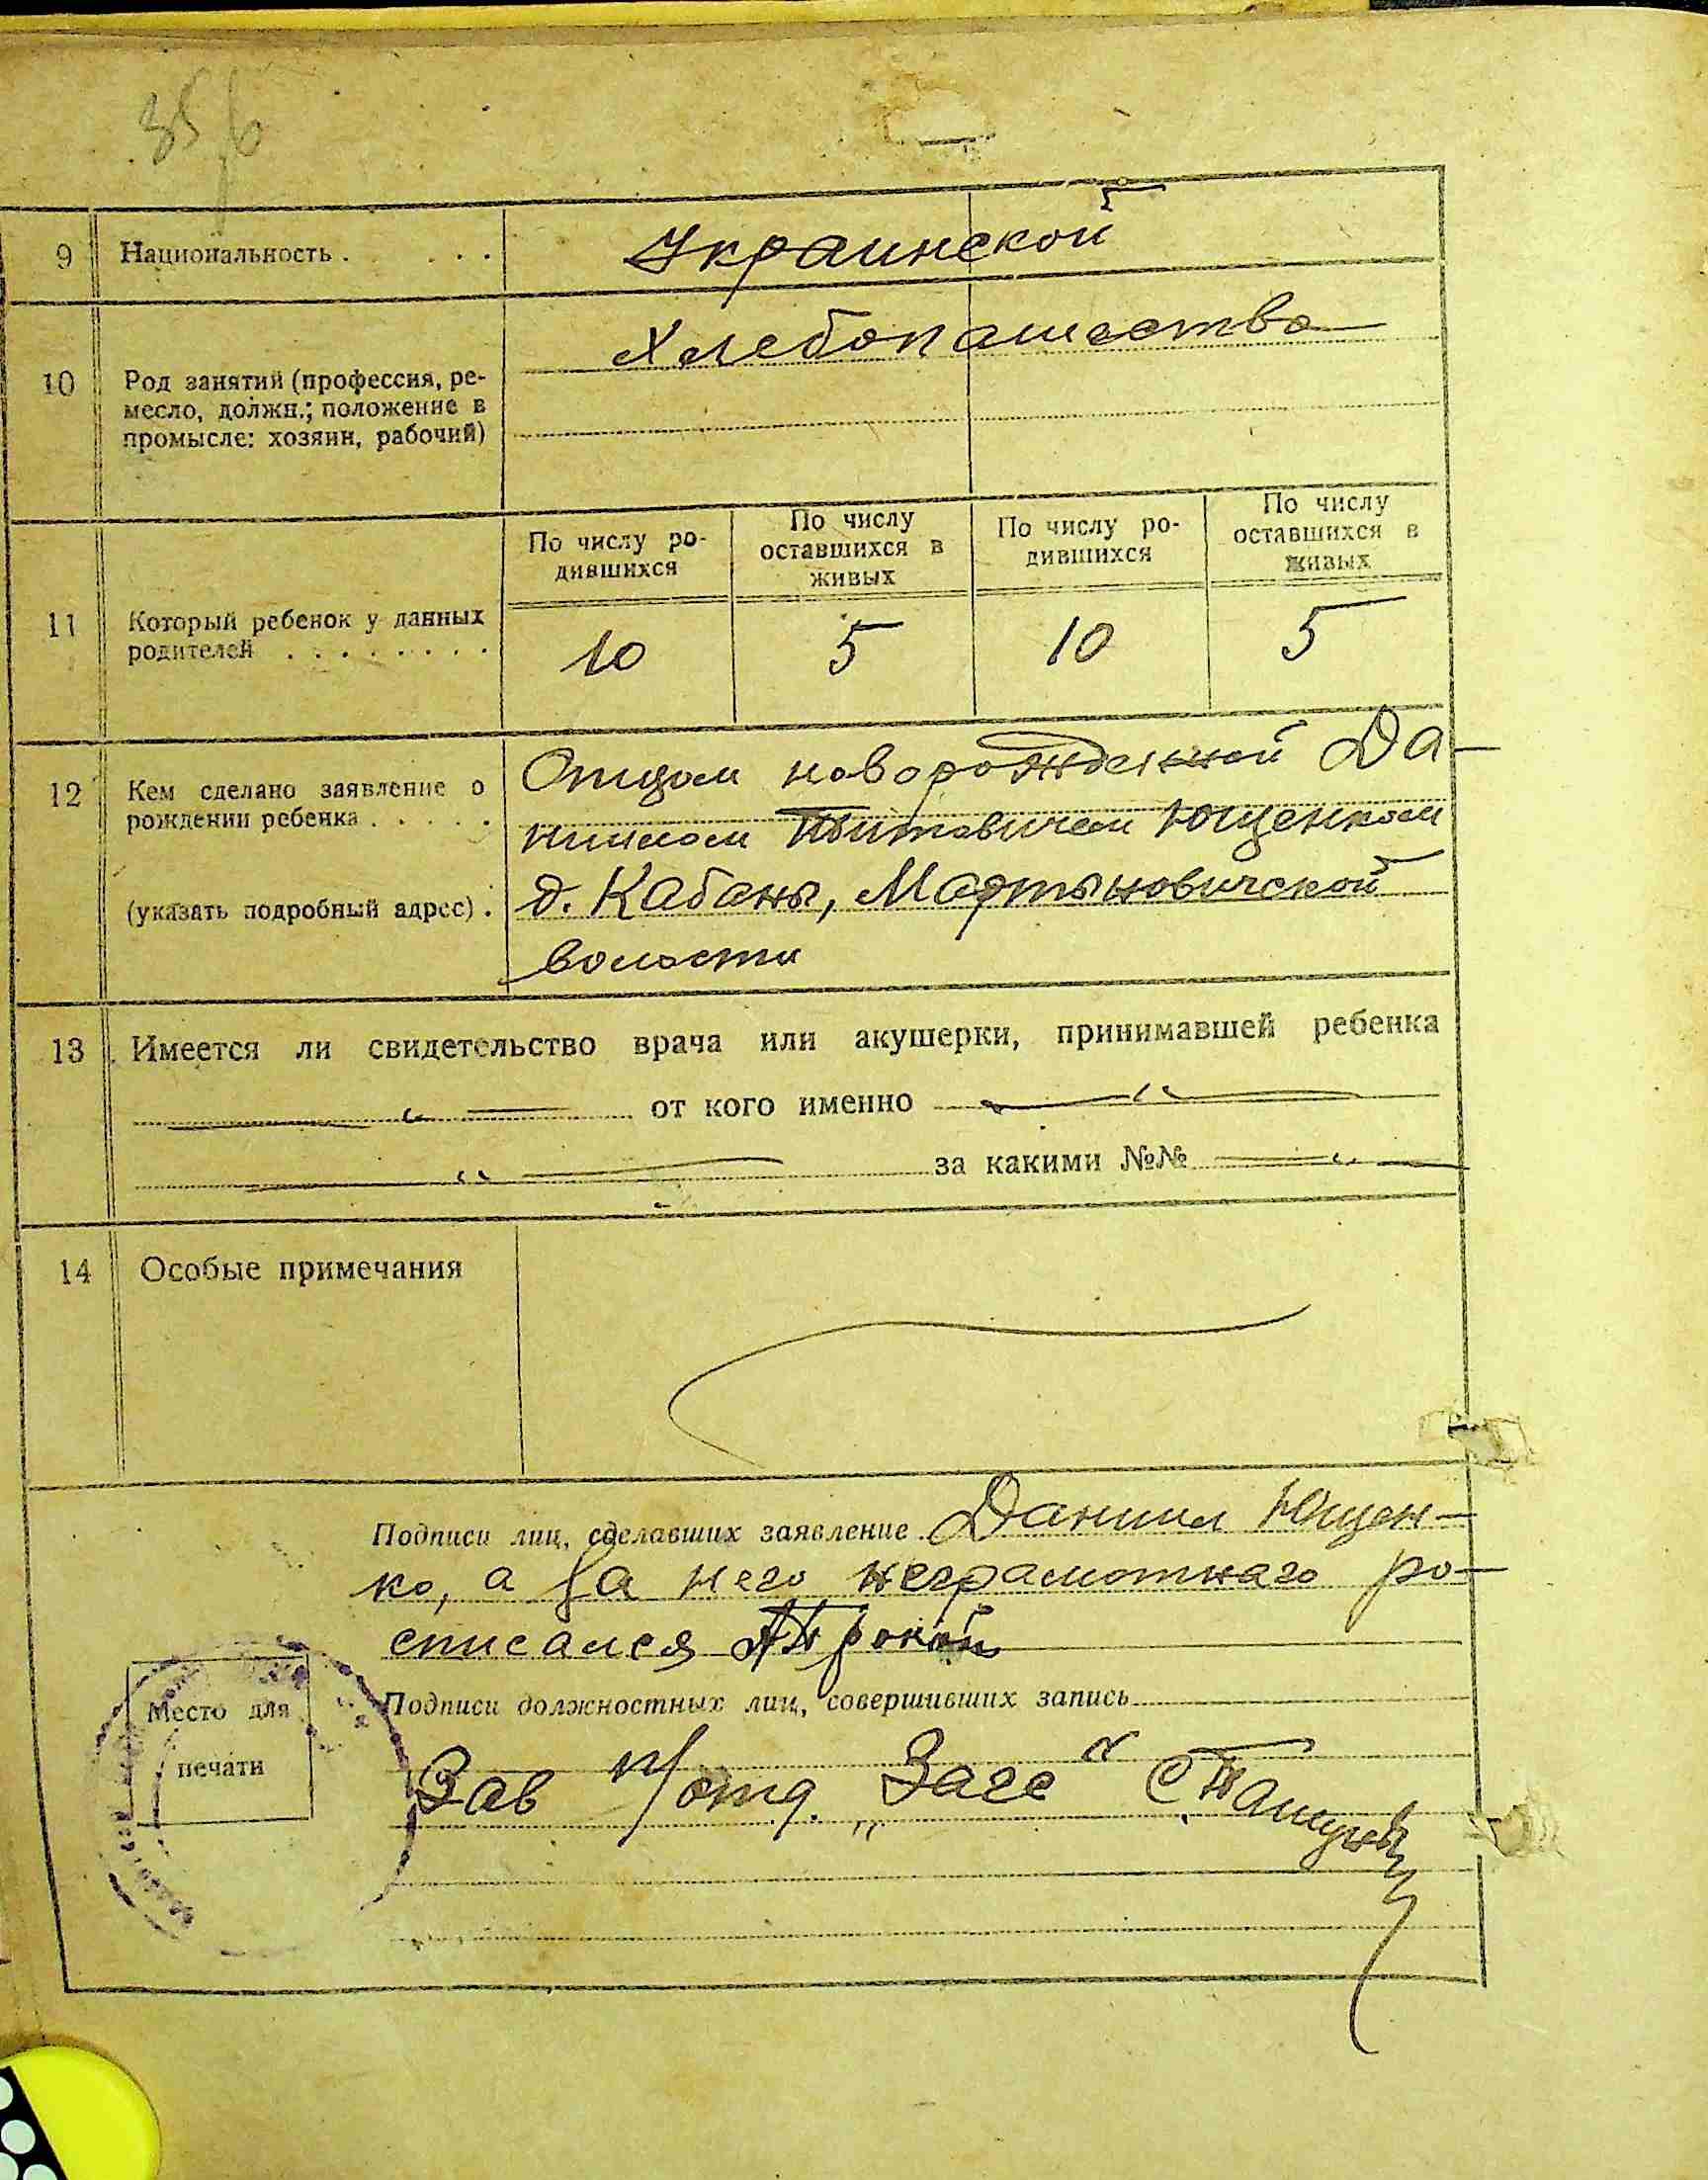 9 Национальность . . . . Украинской
10 Род занятий (профессия, ре-
месло, должн.; положение в
промысле: хозяин, рабочий)
Хлебопашество
11 Который ребенок у данных
родителей . . . . . . . .
По числу ро-
дившихся
По числу
оставшихся в
живых
По числу ро-
дившихся
По числу
оставшихся в
живых
10 5 10 5
12 Кем сделано заявление о
рождении ребенка . . . . .
(указать подробный адрес) .
Отцом новорожденной Да-
ниилом Титовичем Ющенком
д. Кабаны, Мартыновичской
волости
13 Имеется ли свидетельство врача или акушерки, принимавшей ребенка
— " — от кого именно — " —
— " — за какими №№ — " —
14 Особые примечания
Подписи лиц, сделавших заявление Даниил Ющен-
ко, а за него неграмотнаго ро-
списался
Подписи должностных лиц, совершивших запись
Место для
печати
Зав п/отд. „Загс“